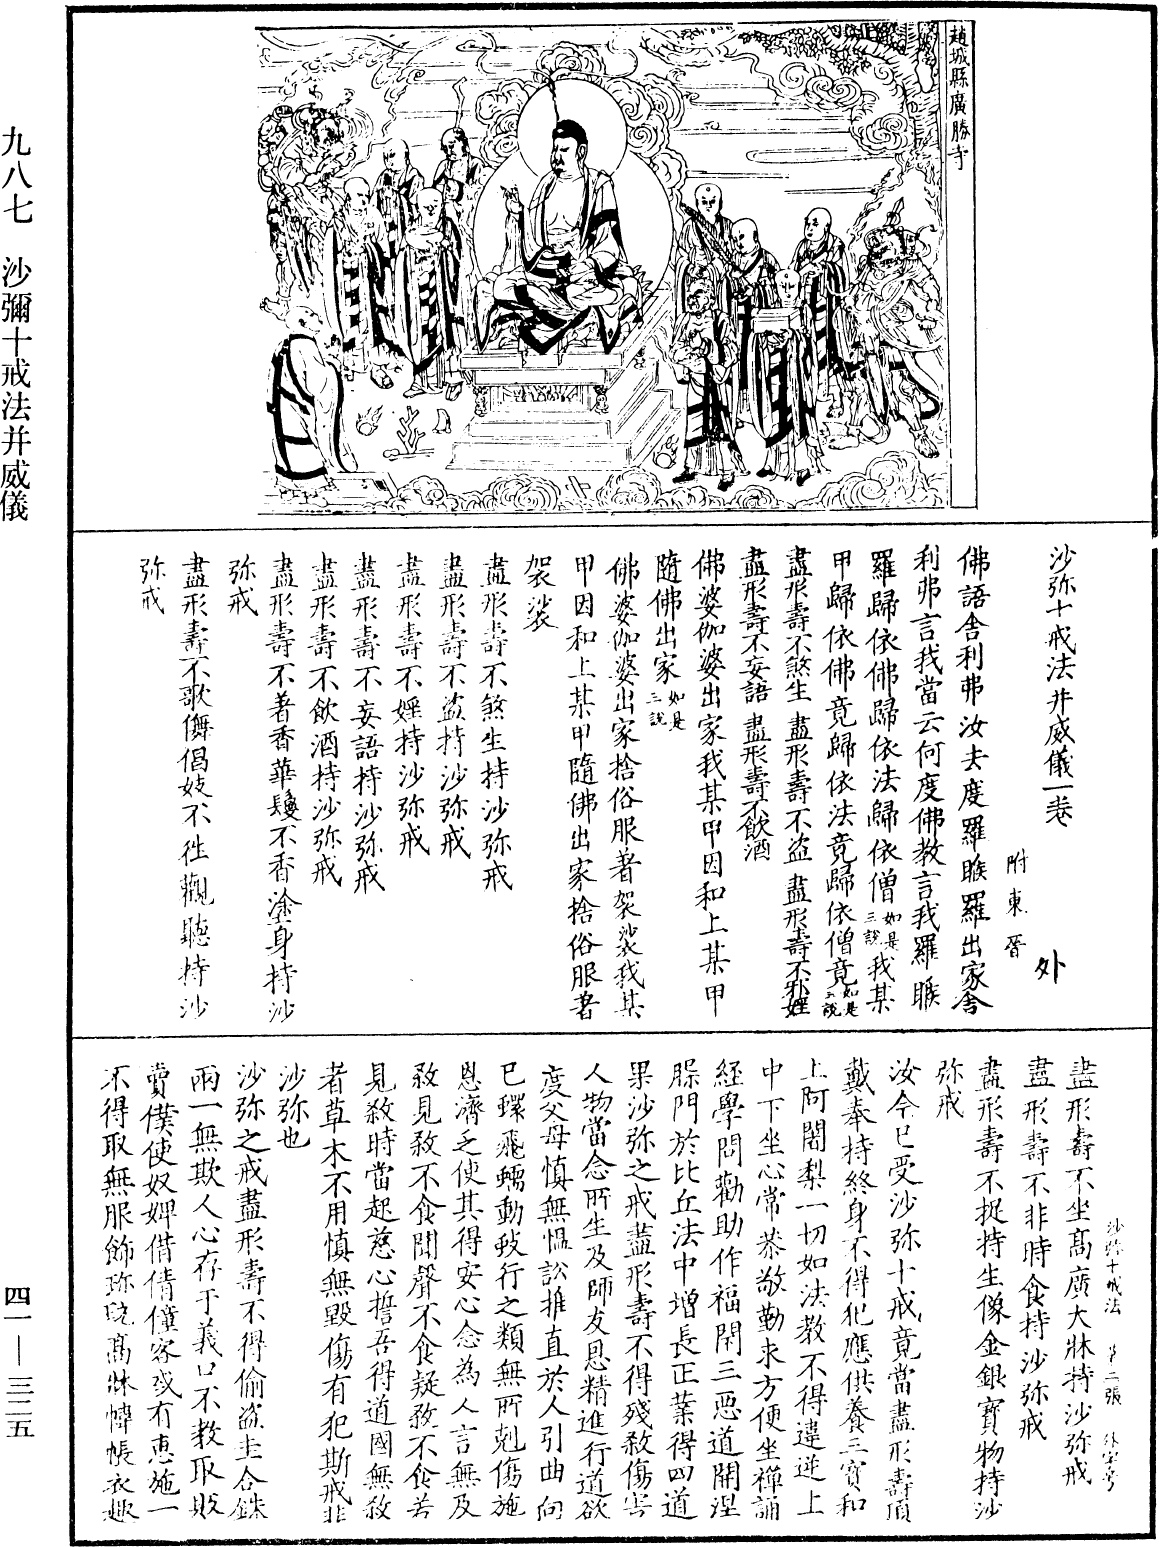 趙城縣廣勝寺
九八七　沙彌十戒法并威儀
沙弥十戒法并威儀一卷
附東晉　外
佛語舍利弗汝去度羅睺羅出家舍
利弗言我當云何度佛教言我羅睺
羅歸依佛歸依法歸依僧如是三說我某
甲歸依佛竟歸依法竟歸依僧竟如是三說
盡形壽不煞生盡形壽不盜盡形壽不邪婬
盡形壽不妄語盡形壽不飲酒
佛婆伽婆出家我某甲因和上某甲
隨佛出家如是三說
佛婆伽婆出家捨俗服著袈裟我某
甲因和上某甲隨佛出家捨俗服著
袈裟
盡形壽不煞生持沙弥戒
盡形壽不盜持沙弥戒
盡形壽不婬持沙弥戒
盡形壽不妄語持沙弥戒
盡形壽不飲酒持沙弥戒
盡形壽不著香華鬘不香塗身持沙
弥戒
盡形壽不歌儛倡妓不往觀聽持沙
弥戒
沙弥十戒法　第二張　外字号
盡形壽不坐高廣大牀持沙弥戒
盡形壽不非時食持沙弥戒
盡形壽不捉持生像金銀寶物持沙
弥戒
汝今已受沙弥十戒竟當盡形壽頂
戴奉持終身不得犯應供養三寶和
上阿闍梨一切如法教不得違逆上
中下坐心常恭敬勤求方便坐禪誦
經學問勸助作福閇三惡道開涅
槃門於比丘法中增長正業得四道
果沙弥之戒盡形壽不得殘殺傷害
人物當念所生及師友恩精進行道欲
度父母慎無愠訟推直於人引曲向
已蠉飛蠕動蚑行之類無所剋傷施
恩濟乏使其得安心念為人言無及
殺見殺不食聞聲不食疑殺不食若
見殺時當起慈心誓吾得道國無殺
者草木不用慎無毀傷有犯斯戒非
沙弥也
沙弥之戒盡形壽不得偷盜圭合銖
兩一無欺人心存于義口不教取販
賣僕使奴婢借倩僮客或有惠施一
不得取無服飾珎玩高牀幃帳衣趣
四一—三二五